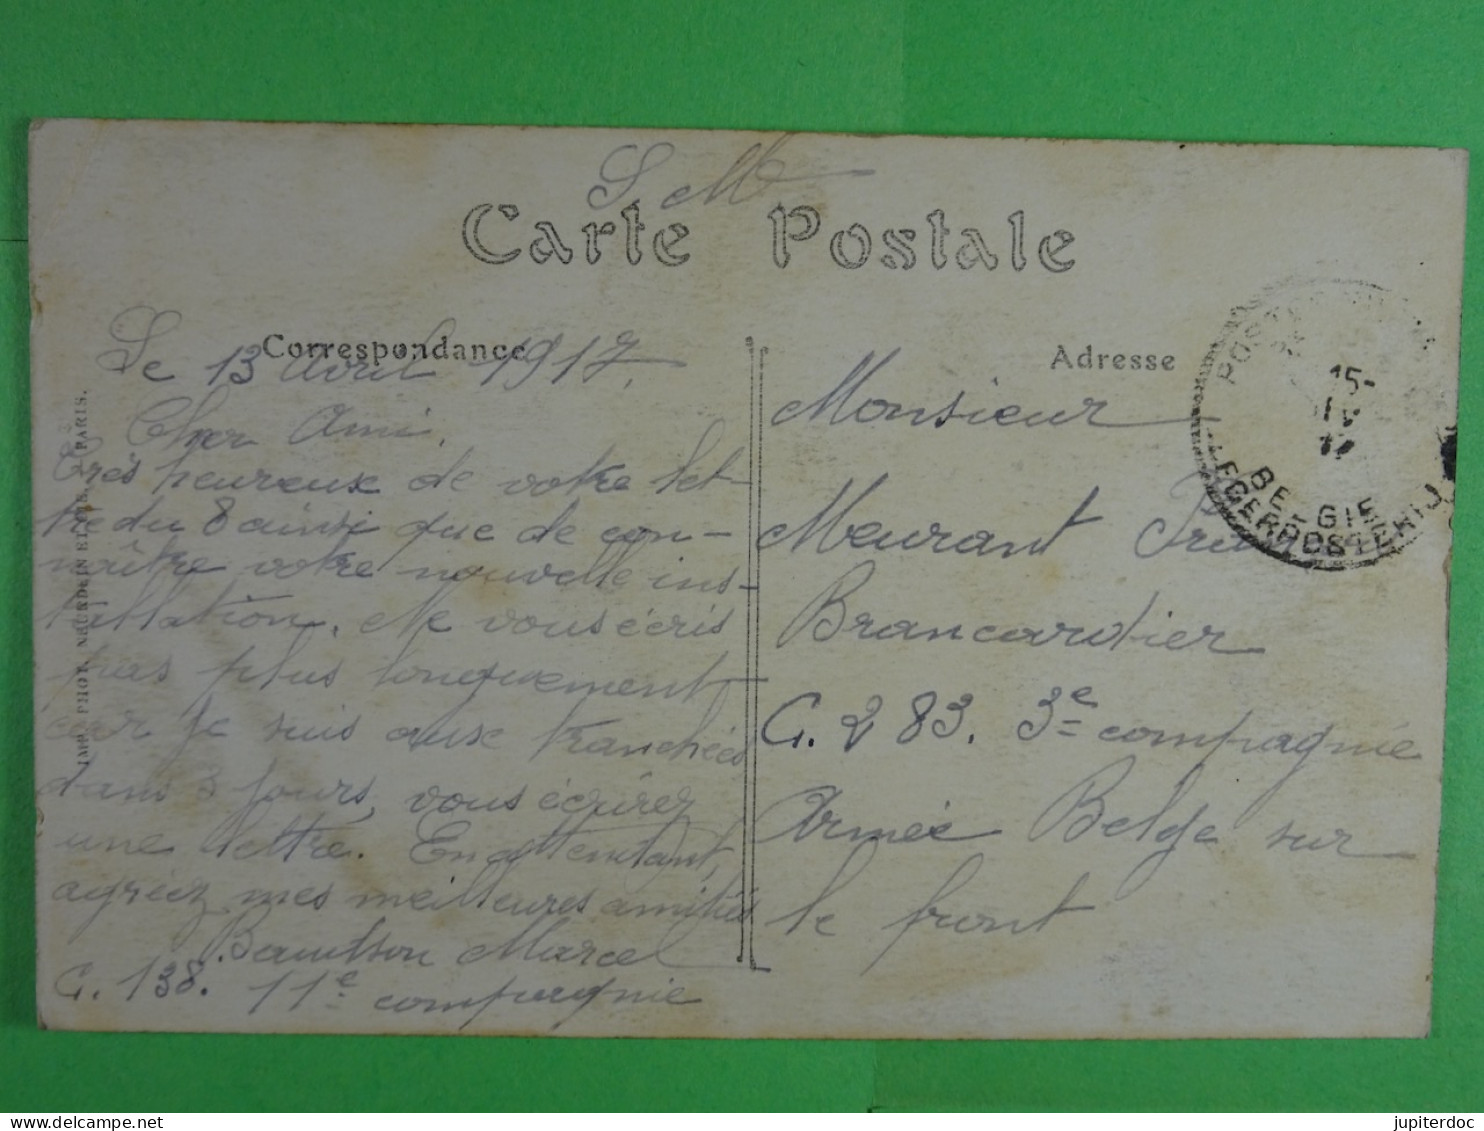 S M
Carte Postale
Correspondance
Le 13 Avril 1917.
Cher Ami.
Très heureux de votre let-
tre du 8 ainsi que de con-
naître votre nouvelle ins-
tallation. Ne vous écris
pas plus longuement
car je suis aux tranchées
dans 3 jours, vous écrirez
une lettre. En attendant,
agréez mes meilleures amitiés
Marcel
C. 138. 11e compagnie
Adresse
Monsieur
Meurant
Brancardier
C. 283. 3e compagnie
Armée Belge sur
le front
15-
IV
17
BELGIE
LEGERPOSTERIJ
PHOT. NEURDEIN ET CIE. PARIS.
jupiterdoc